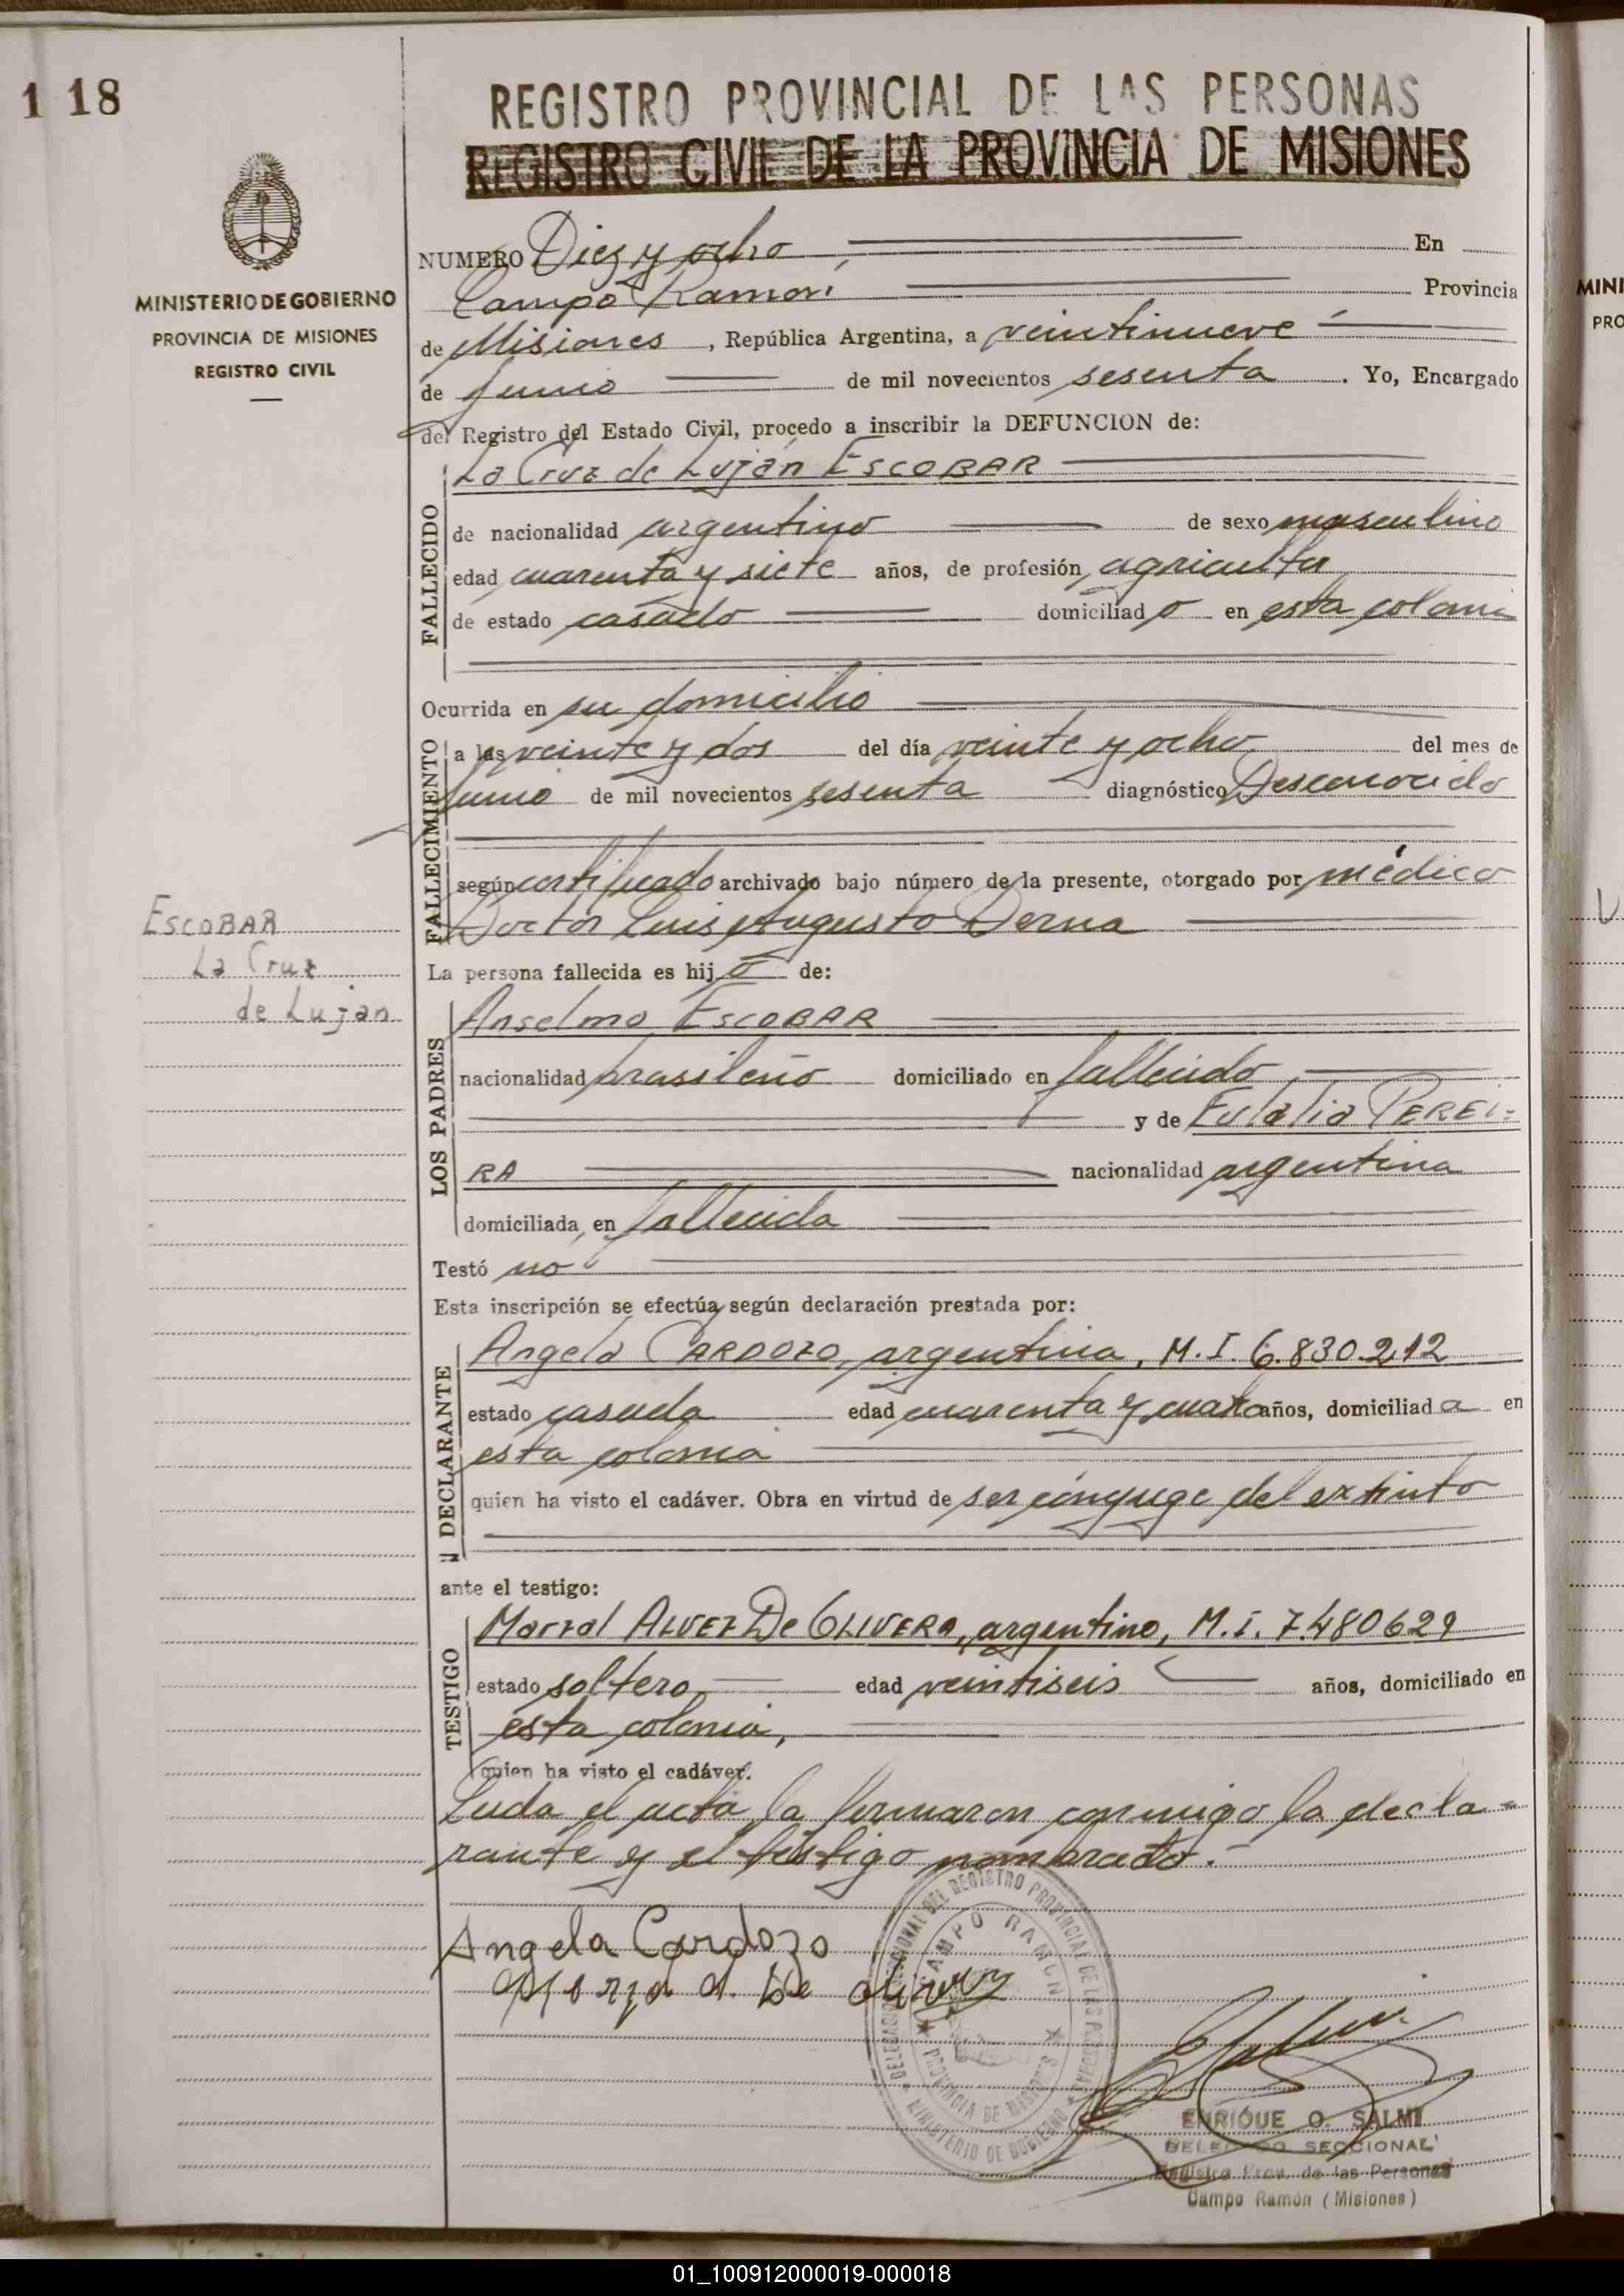 1 18
REGISTRO PROVINCIAL DE LAS PERSONAS
REGISTRO CIVIL DE LA PROVINCIA DE MISIONES
MINISTERIO DE GOBIERNO
PROVINCIA DE MISIONES
REGISTRO CIVIL
NUMERO Diez y ocho En
Campo Ramón Provincia
de Misiones, República Argentina, a veintinueve
de Junio de mil novecientos sesenta. Yo, Encargado
del Registro del Estado Civil, procedo a inscribir la DEFUNCION de:
FALLECIDO
La Cruz de Luján ESCOBAR
de nacionalidad argentino de sexo masculino
edad cuarenta y siete años, de profesión agricultor
de estado casado domiciliado en esta coloni
Ocurrida en su domicilio
FALLECIMIENTO
a las veinte y dos del día veinte y ocho del mes de
Junio de mil novecientos sesenta diagnóstico Desconocido
según certificado archivado bajo número de la presente, otorgado por médico
Doctor Luis Augusto Derna
ESCOBAR
La Cruz
de Lujan
La persona fallecida es hijo de:
LOS PADRES
Anselmo ESCOBAR
nacionalidad brasileño domiciliado en fallecido
y de Eulalia PEREI=
RA nacionalidad argentina
domiciliada en fallecida
Testó no
Esta inscripción se efectúa según declaración prestada por:
DECLARANTE
Angela CARDOZO, argentina, M.I. 6.830.212
estado casada edad cuarenta y cuatro años, domiciliada en
esta colonia
quien ha visto el cadáver. Obra en virtud de ser cónyuge del extinto
ante el testigo:
TESTIGO
Marzal ALVEZ De OLIVERA, argentino, M.I. 7.480629
estado soltero edad veintiseis años, domiciliado en
esta colonia,
quien ha visto el cadáver.
Leida el acta, la firmaron conmigo la decla=
rante y el testigo nombrado.-
Angela Cardozo
De
DELEGACION SECCIONAL DEL REGISTRO PROVINCIAL DE LAS PERSONAS
CAMPO RAMON
PROVINCIA DE MISIONES
MINISTERIO DE GOBIERNO
ENRIQUE O. SALMI
DELEGADO SECCIONAL
Registro Prov. de las Personas
Campo Ramón (Misiones)
MINI
PRO
01_100912000019-000018